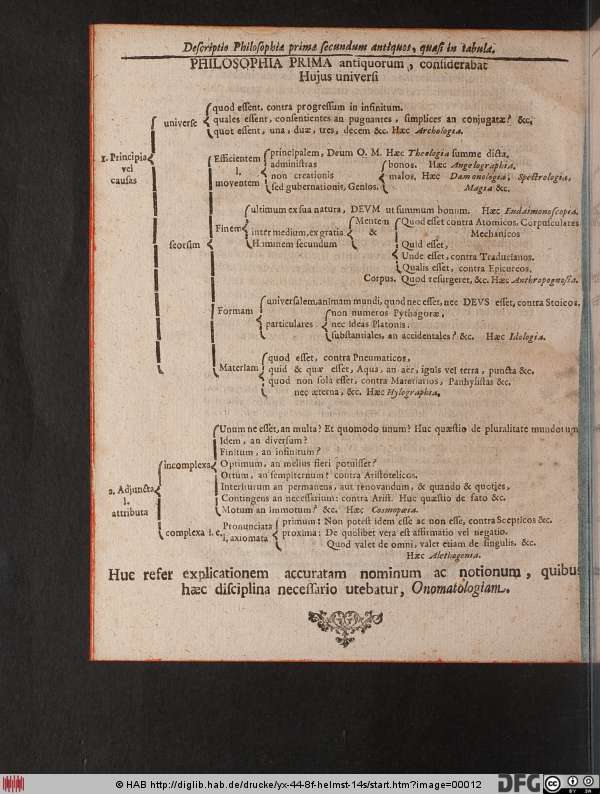 Descriptio Philosophiæ primæ secundum antiquos, quasi in tabula.
PHILOSOPHIA PRIMA antiquorum, considerabat
Hujus universi
1. Principia vel causas
universe
quod essent, contra progressum in infinitum.
quales essent, consentientes an pugnantes, simplices an conjugatæ? &c.
quot essent, una, duæ, tres, decem &c. Hæc Archologia.
seorsim
Efficientem l. moventem
principalem, Deum O. M. Hæc Theologia summe dicta.
administras
non creationis
sed gubernationis, Genios.
bonos. Hæc Angelographia.
malos. Hæc Dæmonologia, Spectrologia,
Magia &c.
Finem
ultimum ex sua natura, DEVM ut summum bonum. Hæc Eudaimonoscopia.
intermedium, ex gratia
Hominem secundum
Mentem
&
Quod esset contra Atomicos. Corpusculares
Mechanicos
Quid esset,
Unde esset, contra Traducianos.
Qualis esset, contra Epicureos.
Corpus. Quod resurgeret, &c. Hæc Anthropognosia.
Formam
universalem, animam mundi, quod nec esset, nec DEVS esset, contra Stoicos.
particulares
non numeros Pythagoræ,
nec Ideas Platonis.
substantiales, an accidentales? &c. Hæc Idologia.
Materiam
quod esset, contra Pneumaticos,
quid & quæ esset, Aqua, an aër, ignis vel terra, puncta &c.
quod non sola esset, contra Materiarios, Panhylistas &c.
nec æterna, &c. Hæc Hylographia.
2. Adjuncta l. attributa
incomplexa
Unum ne esset, an multa? Et quomodo unum? Huc quæstio de pluralitate mundorum
Idem, an diversum?
Finitum, an infinitum?
Optimum, an melius fieri potuisset?
Ortum, an sempiternum? contra Aristotelicos.
Interiturum an permanens, aut renovandum, & quando & quoties,
Contingens an necessarium: contra Arist. Huc quæstio de fato &c.
Motum an immotum? &c. Hæc Cosmopœia.
complexa i. e.
Pronunciata
l. axiomata
primum: Non potest idem esse ac non esse, contra Scepticos &c.
proxima: De quolibet vera est affirmatio vel negatio.
Quod valet de omni, valet etiam de singulis. &c.
Hæc Alethogenia.
Huc refer explicationem accuratam nominum ac notionum, quibus
hæc disciplina necessario utebatur, Onomatologiam.
© HAB http://diglib.hab.de/drucke/yx-44-8f-helmst-14s/start.htm?image=00012
DFG
CC BY SA